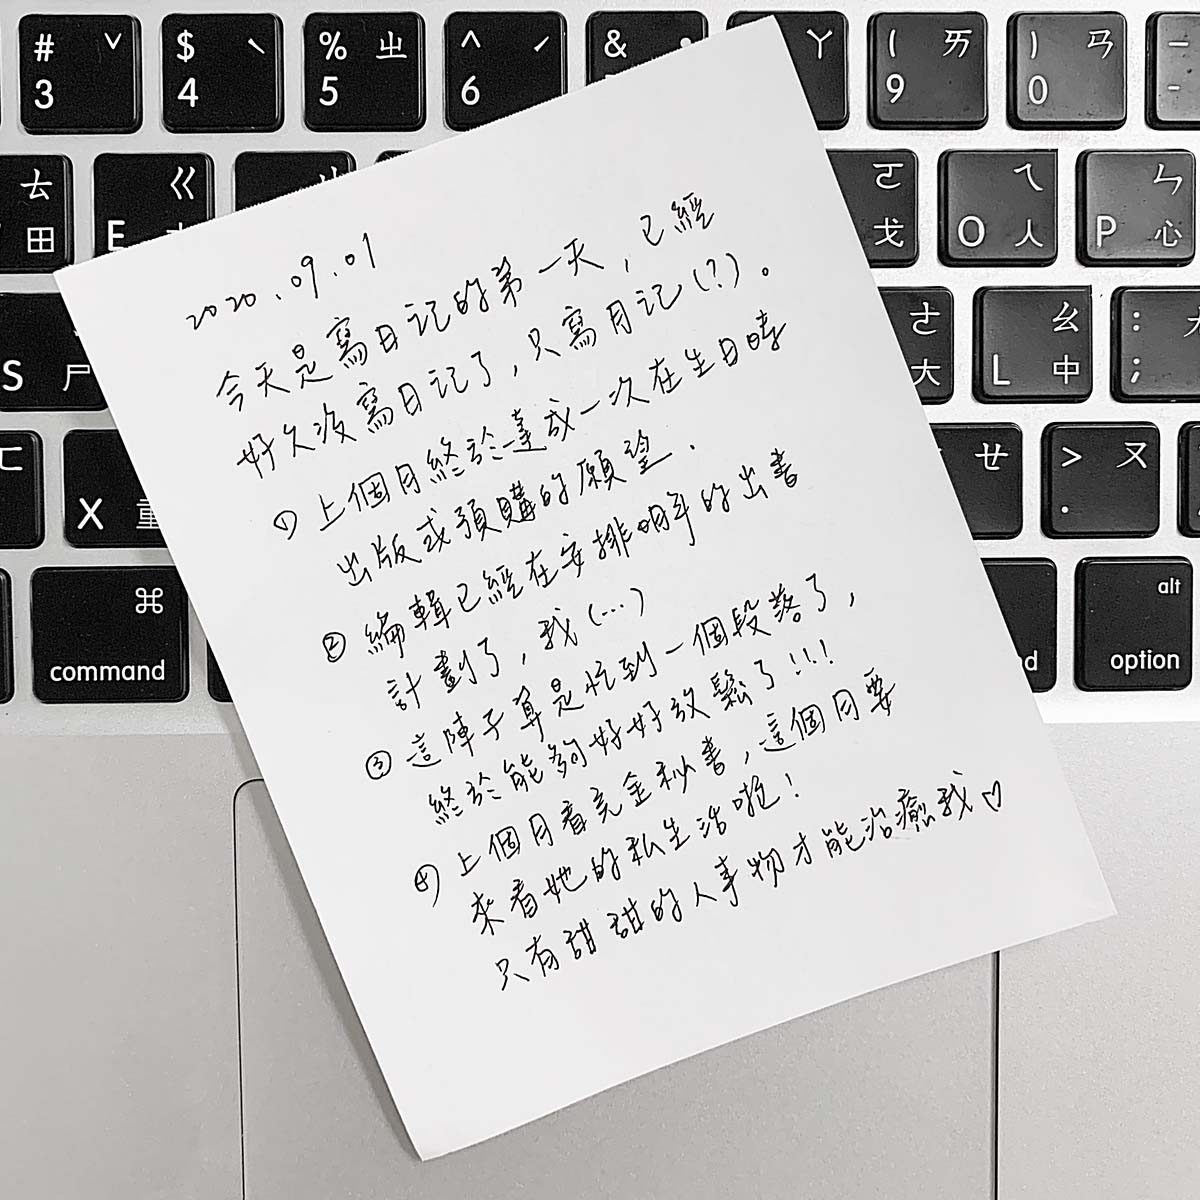 # ˇ 3
$ ˋ 4
% ㄓ 5
^ ˊ 6
& ˙
ㄚ
( ㄞ 9
) ㄢ 0
ㄊ 田
ㄍ E
ㄛ 戈
ㄟ O 人
ㄣ P 心
S ㄕ
ㄜ 大
ㄠ L 中
: ;
ㄈ
X 重
ㄝ
> ㄡ .
⌘ command
alt option
2020.09.01
今天是寫日記的第一天,已經
好久沒寫日記了,只寫月記(?)。
① 上個月終於達成一次在生日時
出版或預購的願望.
② 編輯已經在安排明年的出書
計劃了,我(...)
③ 這陣子算是忙到一個段落了,
終於能夠好好放鬆了!!!
④ 上個月看完金秘書,這個月要
來看她的私生活啦!
只有甜甜的人事物才能治癒我♡